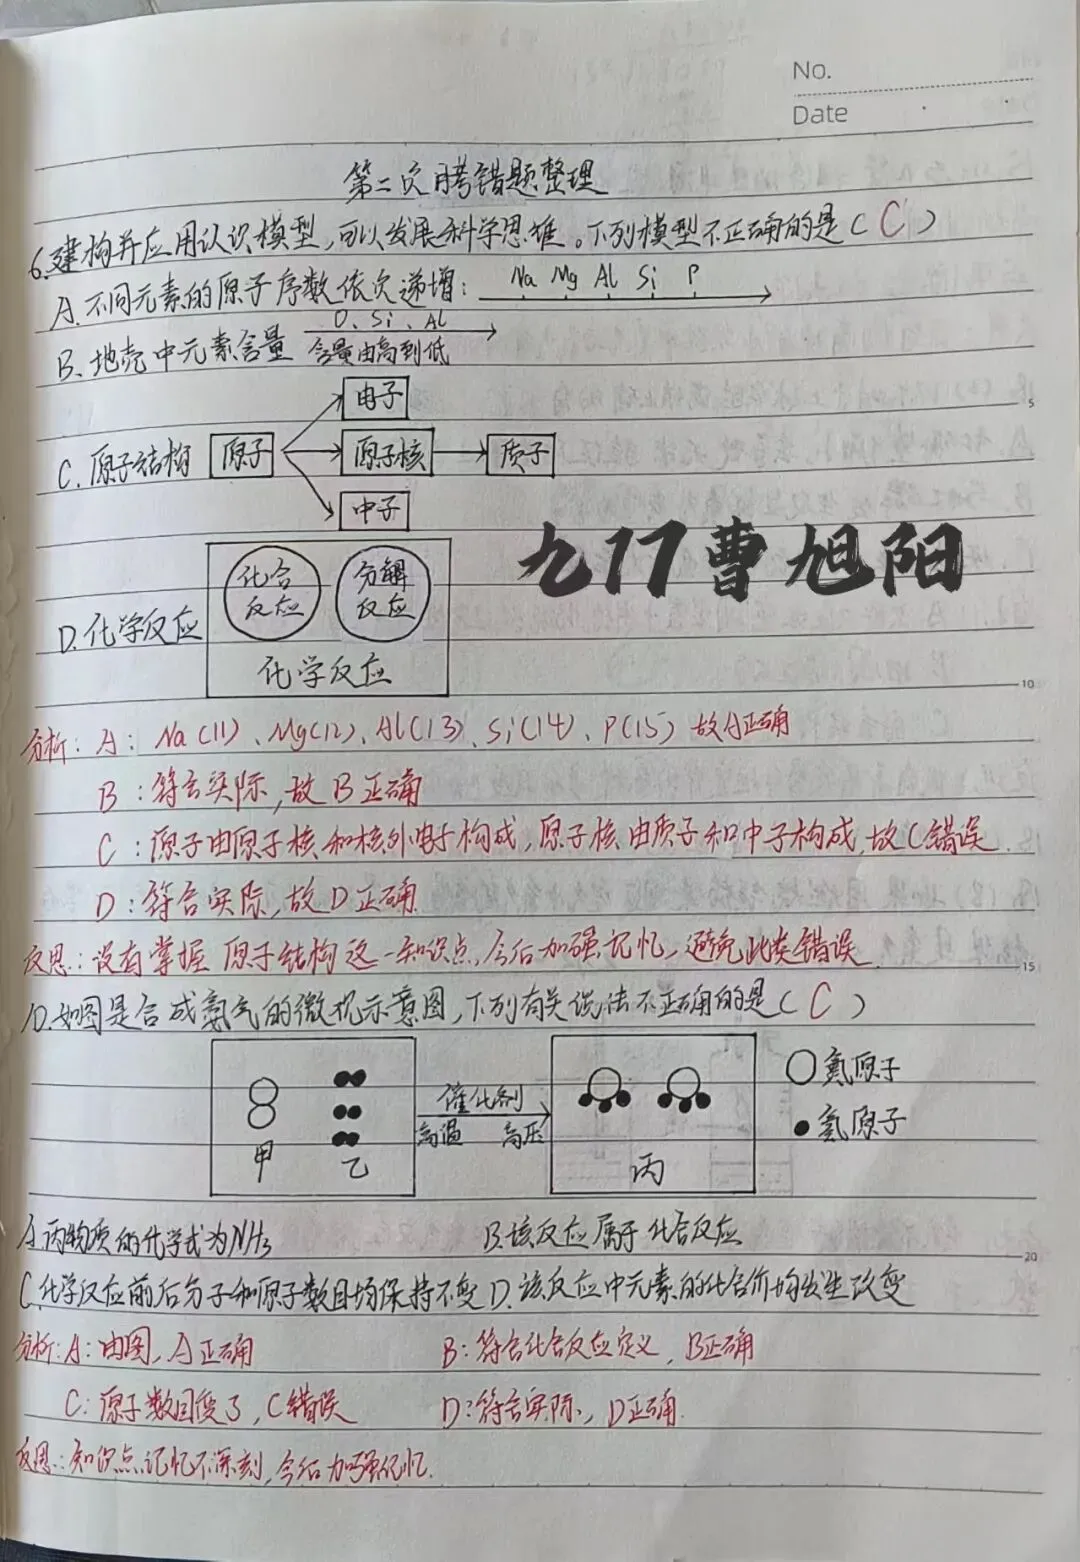 No.
Date
第二次月考错题整理
6.建构并应用认识模型,可以发展科学思维。下列模型不正确的是( C )
A.不同元素的原子序数依次递增: Na Mg Al Si P
B、地壳中元素含量 O、Si、Al 含量由高到低
电子
C.原子结构 原子 原子核 质子
中子
九17曹旭阳
化合反应 分解反应
D.化学反应
化学反应
分析: A: Na(11)、Mg(12)、Al(13)、Si(14)、P(15) 故A正确
B:符合实际,故B正确
C:原子由原子核和核外电子构成,原子核由质子和中子构成,故C错误.
D:符合实际,故D正确.
反思:没有掌握原子结构这一知识点,今后加强记忆,避免此类错误.
10.如图是合成氨气的微观示意图,下列有关说法不正确的是( C )
催化剂
高温 高压
氮原子
氢原子
甲 乙 丙
A.丙物质的化学式为NH3 B.该反应属于化合反应
C.化学反应前后分子和原子数目均保持不变 D.该反应中元素的化合价均发生改变
分析:A:由图,A正确 B:符合化合反应定义,B正确
C:原子数目变了,C错误 D:符合实际,D正确.
反思:知识点记忆不深刻,今后加强记忆.
5
10
15
20